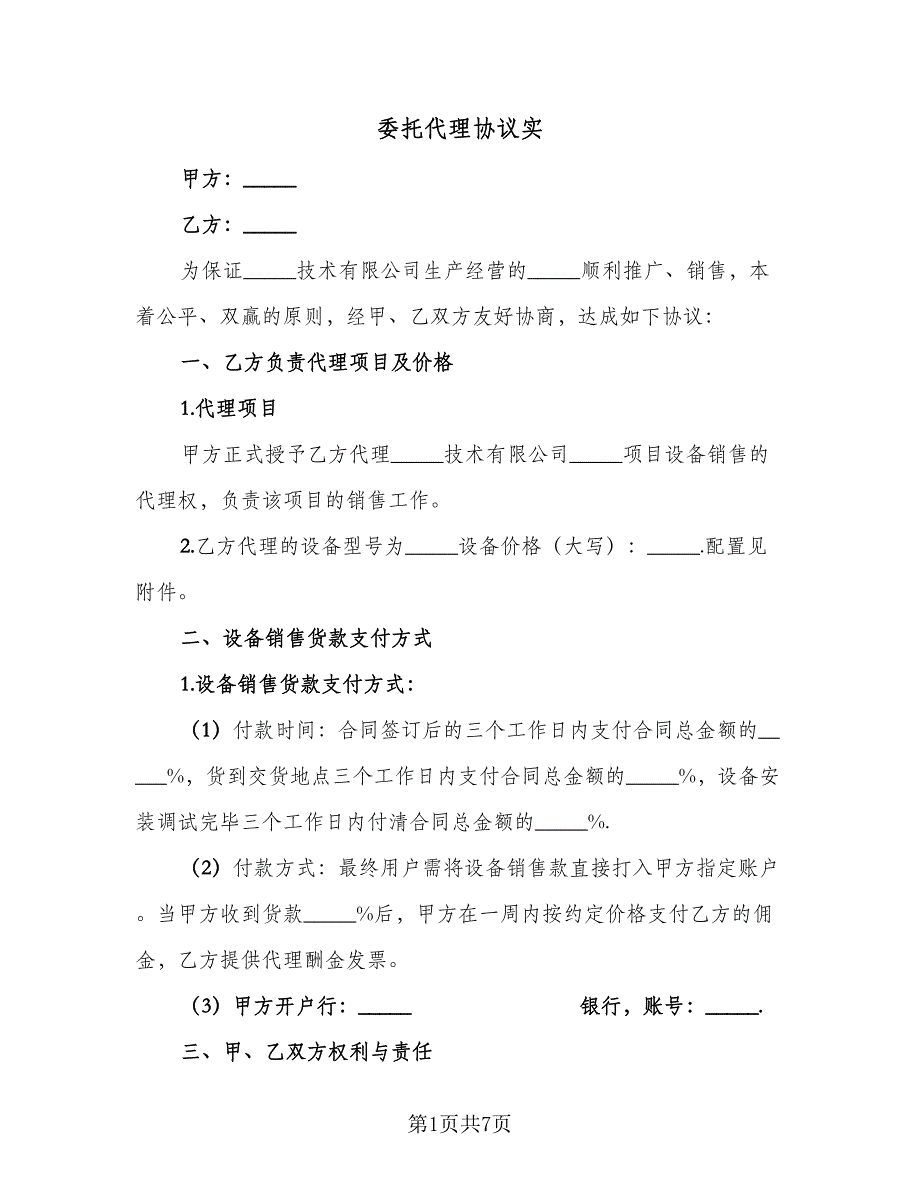 委托代理协议实
甲方：_____
乙方：_____
为保证_____技术有限公司生产经营的_____顺利推广、销售，本
着公平、双赢的原则，经甲、乙双方友好协商，达成如下协议：
一、乙方负责代理项目及价格
1.代理项目
甲方正式授予乙方代理_____技术有限公司_____项目设备销售的
代理权，负责该项目的销售工作。
2.乙方代理的设备型号为_____设备价格（大写）：_____.配置见
附件。
二、设备销售货款支付方式
1.设备销售货款支付方式：
（1）付款时间：合同签订后的三个工作日内支付合同总金额的__
___%，货到交货地点三个工作日内支付合同总金额的_____%，设备安
装调试完毕三个工作日内付清合同总金额的_____%.
（2）付款方式：最终用户需将设备销售款直接打入甲方指定账户
。当甲方收到货款_____%后，甲方在一周内按约定价格支付乙方的佣
金，乙方提供代理酬金发票。
（3）甲方开户行：_____ 银行，账号：_____.
三、甲、乙双方权利与责任
第1页共7页